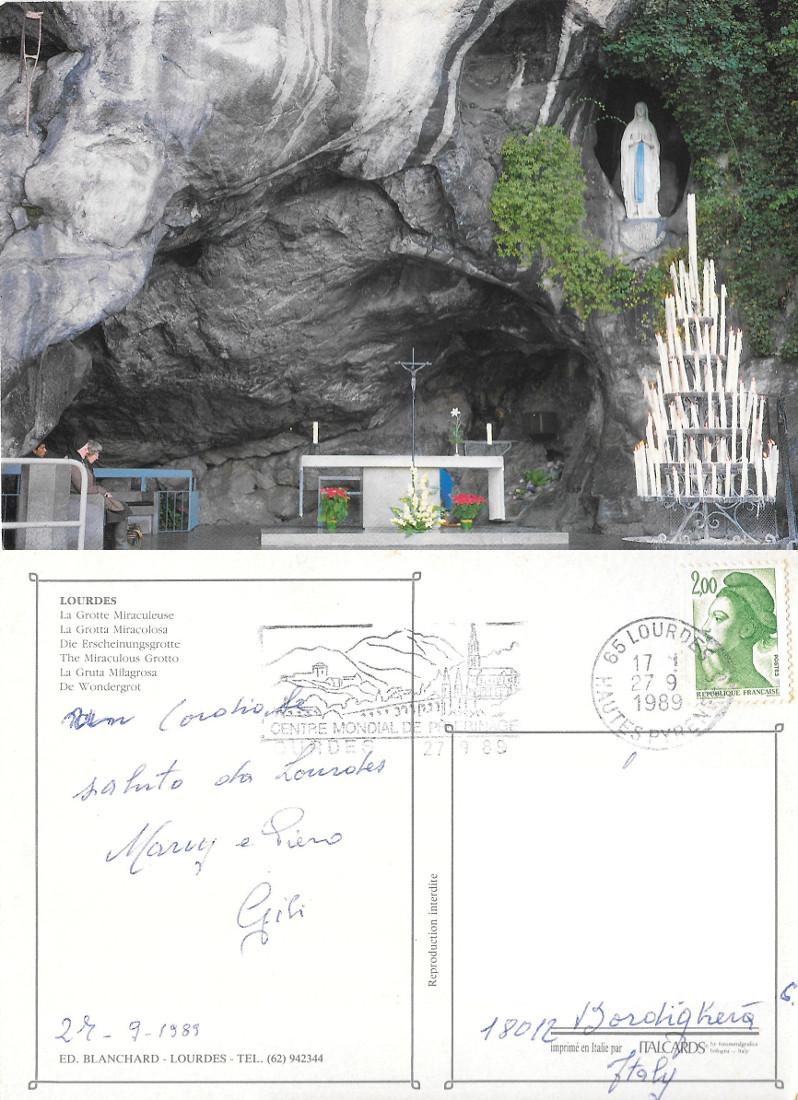 LOURDES
La Grotte Miraculeuse
La Grotta Miracolosa
Die Erscheinungsgrotte
The Miraculous Grotto
La Gruta Milagrosa
De Wondergrot
CENTRE MONDIAL DE PELERINAGE
LOURDES 27 9 89
65 LOURDES
17
27 9
1989
HAUTES PYRENEES
2,00
POSTES
REPUBLIQUE FRANCAISE
Cordiale
saluto da Lourdes
Mary e Piero
27-9-1989
ED. BLANCHARD - LOURDES - TEL. (62) 942344
Reproduction interdite
18012 Bordighera
imprimé en Italie par ITALCARDS
bologna - italy
Italy